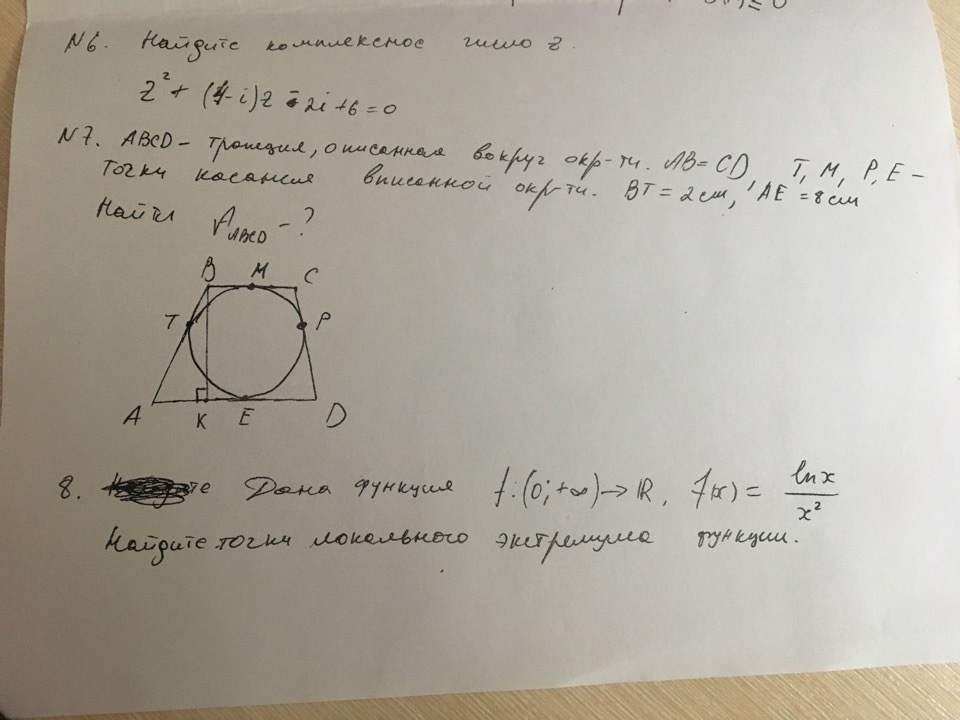 N6. Найдите комплексное число z.
z² + (4-i)z - 2i + 6 = 0
N7. ABCD – трапеция, описанная вокруг окр-ти. AB = CD, T, M, P, E –
точки касания вписанной окр-ти. BT = 2 см, AE = 8 см
Найти A_ABCD - ?
B M C
T P
A K E D
8. Дана функция f: (0; +∞) → ℝ, f(x) = ln x / x²
Найдите точки локального экстремума функции.